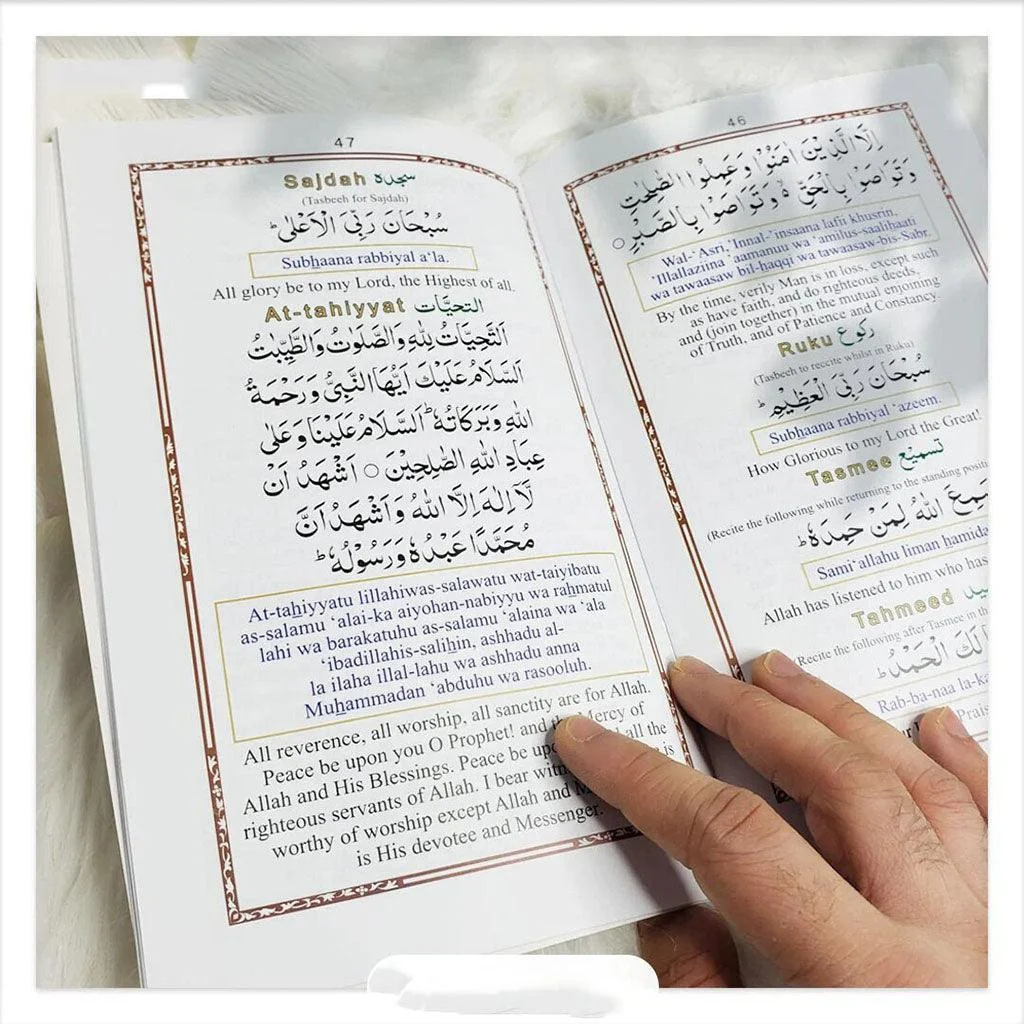 46
اِلَّا الَّذِيْنَ اٰمَنُوْا وَعَمِلُوا الصّٰلِحٰتِ
وَتَوَاصَوْا بِالْحَقِّ ۙ وَتَوَاصَوْا بِالصَّبْرِ ○
Wal-‘Asri,’Innal-’insaana lafii khusrin,
’Illallaziina ’aamanuu wa ‘amilus-saalihaati
wa tawaasaw bil-haqqi wa tawaasaw-bis-Sabr.
By the time, verily Man is in loss, except such
as have faith, and do righteous deeds,
and (join together) in the mutual enjoining
of Truth, and of Patience and Constancy.
Ruku رکوع
(Tasbeeh to reccite whilst in Ruku)
سُبْحَانَ رَبِّيَ الْعَظِيْمِ ؕ
Subhaana rabbiyal ‘azeem.
How Glorious to my Lord the Great!
Tasmee تسمیع
(Recite the following while returning to the standing
سَمِعَ اللهُ لِمَنْ حَمِدَهٗ ؕ
Sami‘allahu liman hamida
Allah has listened to him who has
Tahmeed
Recite the following after Tasmee in the
لَكَ الْحَمْدُ ؕ
Rab-ba-naa
47
Sajdah سجدہ
(Tasbeeh for Sajdah)
سُبْحَانَ رَبِّيَ الْاَعْلٰى ؕ
Subhaana rabbiyal a‘la.
All glory be to my Lord, the Highest of all.
At-tahiyyat التحیَّات
اَلتَّحِيَّاتُ لِلّٰهِ وَالصَّلَوٰتُ وَالطَّيِّبٰتُ
اَلسَّلَامُ عَلَيْكَ اَيُّهَا النَّبِيُّ وَرَحْمَةُ
اللهِ وَبَرَكَاتُهٗ ؕ اَلسَّلَامُ عَلَيْنَا وَعَلٰى
عِبَادِ اللهِ الصّٰلِحِيْنَ ○ اَشْهَدُ اَنْ
لَّآ اِلٰهَ اِلَّا اللهُ وَاَشْهَدُ اَنَّ
مُحَمَّدًا عَبْدُهٗ وَرَسُوْلُهٗ ؕ
At-tahiyyatu lillahiwas-salawatu wat-taiyibatu
as-salamu ‘alai-ka aiyohan-nabiyyu wa rahmatul
lahi wa barakatuhu as-salamu ‘alaina wa ‘ala
‘ibadillahis-salihin, ashhadu al-
la ilaha illal-lahu wa ashhadu anna
Muhammadan ‘abduhu wa rasooluh.
All reverence, all worship, all sanctity are for Allah.
Peace be upon you O Prophet! and Mercy of
Allah and His Blessings. Peace be all the
righteous servants of Allah. I bear is
worthy of worship except Allah and
is His devotee and Messenger.